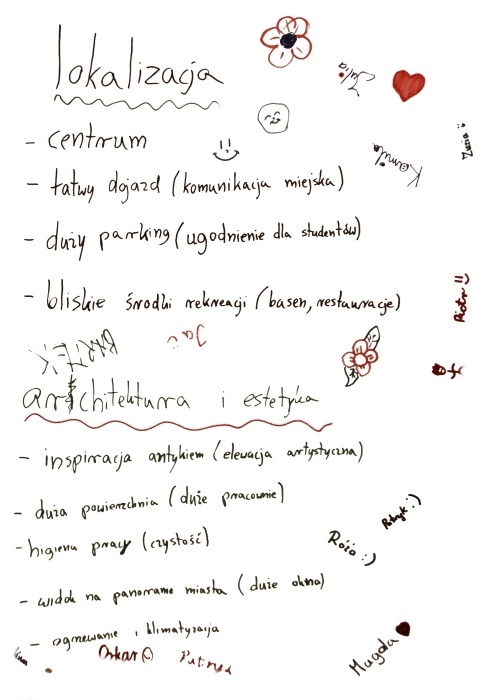 lokalizacja
Julia
- centrum
Kamila
Zuzia :)
- łatwy dojazd (komunikacja miejska)
- duży parking (ugodnienie dla studentów)
- bliskie środki rekreacji (basen, restauracje)
Piotr !!
BARTEK
architektura i estetyka
- inspiracja antykiem (elewacja artystyczna)
- duża powierzchnia (duże pracownie)
Patryk :)
- higiena pracy (czystość)
Róża :)
- widok na panoramę miasta (duże okna)
- ogrzewanie i klimatyzacja
Oskar
Magda